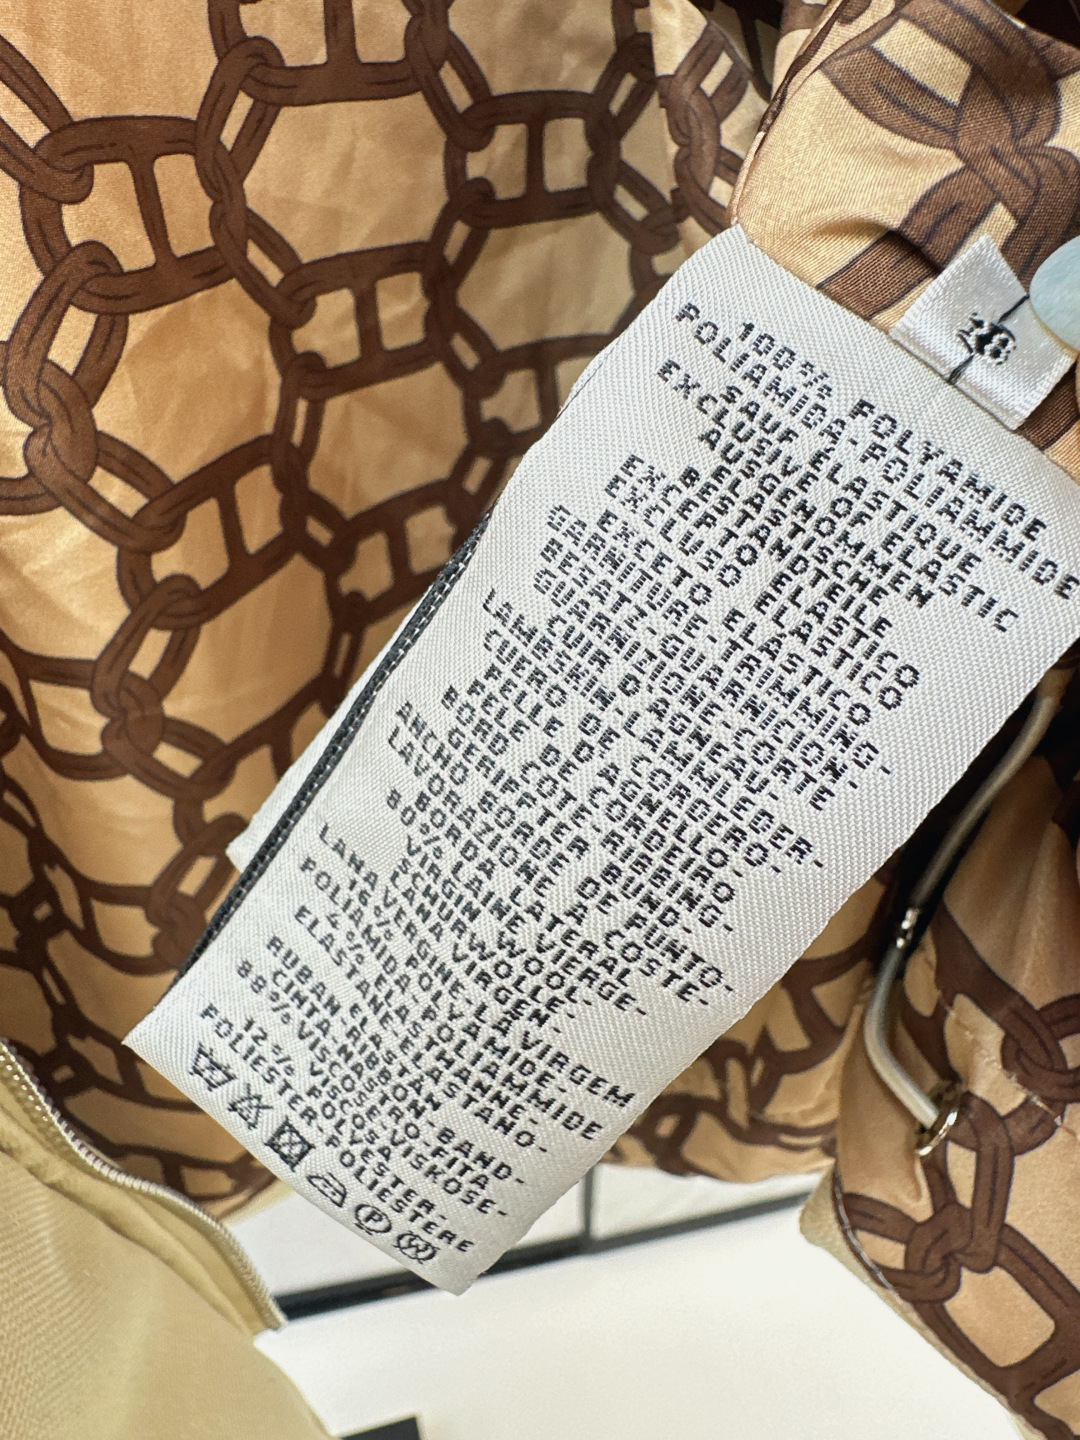 38
100% POLYAMIDE
POLIAMIDA-POLIAMMIDE
SAUF ELASTIQUE
EXCLUSIVE OF ELASTIC
AUSGENOMMEN
ELASTISCHE
BESTANDTEILE
EXCEPTO ELASTICO
EXCLUSO ELASTICO
EXCETO ELASTICO
GARNITURE-TRIMMING-
BESATZ-GUARNICION-
GUARNIZIONE-CORTE
CUIR D'AGNEAU-
LAMBSKIN-LAMMLEDER-
CUERO DE CORDERO-
PELLE D'AGNELLO-
PELE DE CORDEIRO
BORD COTE-RIBBING-
GERIFFTER BUND-
ANCHO BORDE DE PUNTO-
LAVORAZIONE A COSTE-
BORDA LATERAL
80% LAINE VIERGE-
VIRGIN WOOL-
SCHURWOLLE-
LANA VIRGEN-
LANA VERGINE-LA VIRGEM
16% POLYAMIDE-
POLIAMIDA-POLIAMMIDE
4% ELASTHANNE-
ELASTANE-ELASTANO-
ELASTAN
RUBAN-RIBBON-BAND-
CINTA-NASTRO-FITA
88% VISCOSE-VISKOSE-
VISCOSA
12% POLYESTER-
POLIESTER-POLIESTERE
P
W